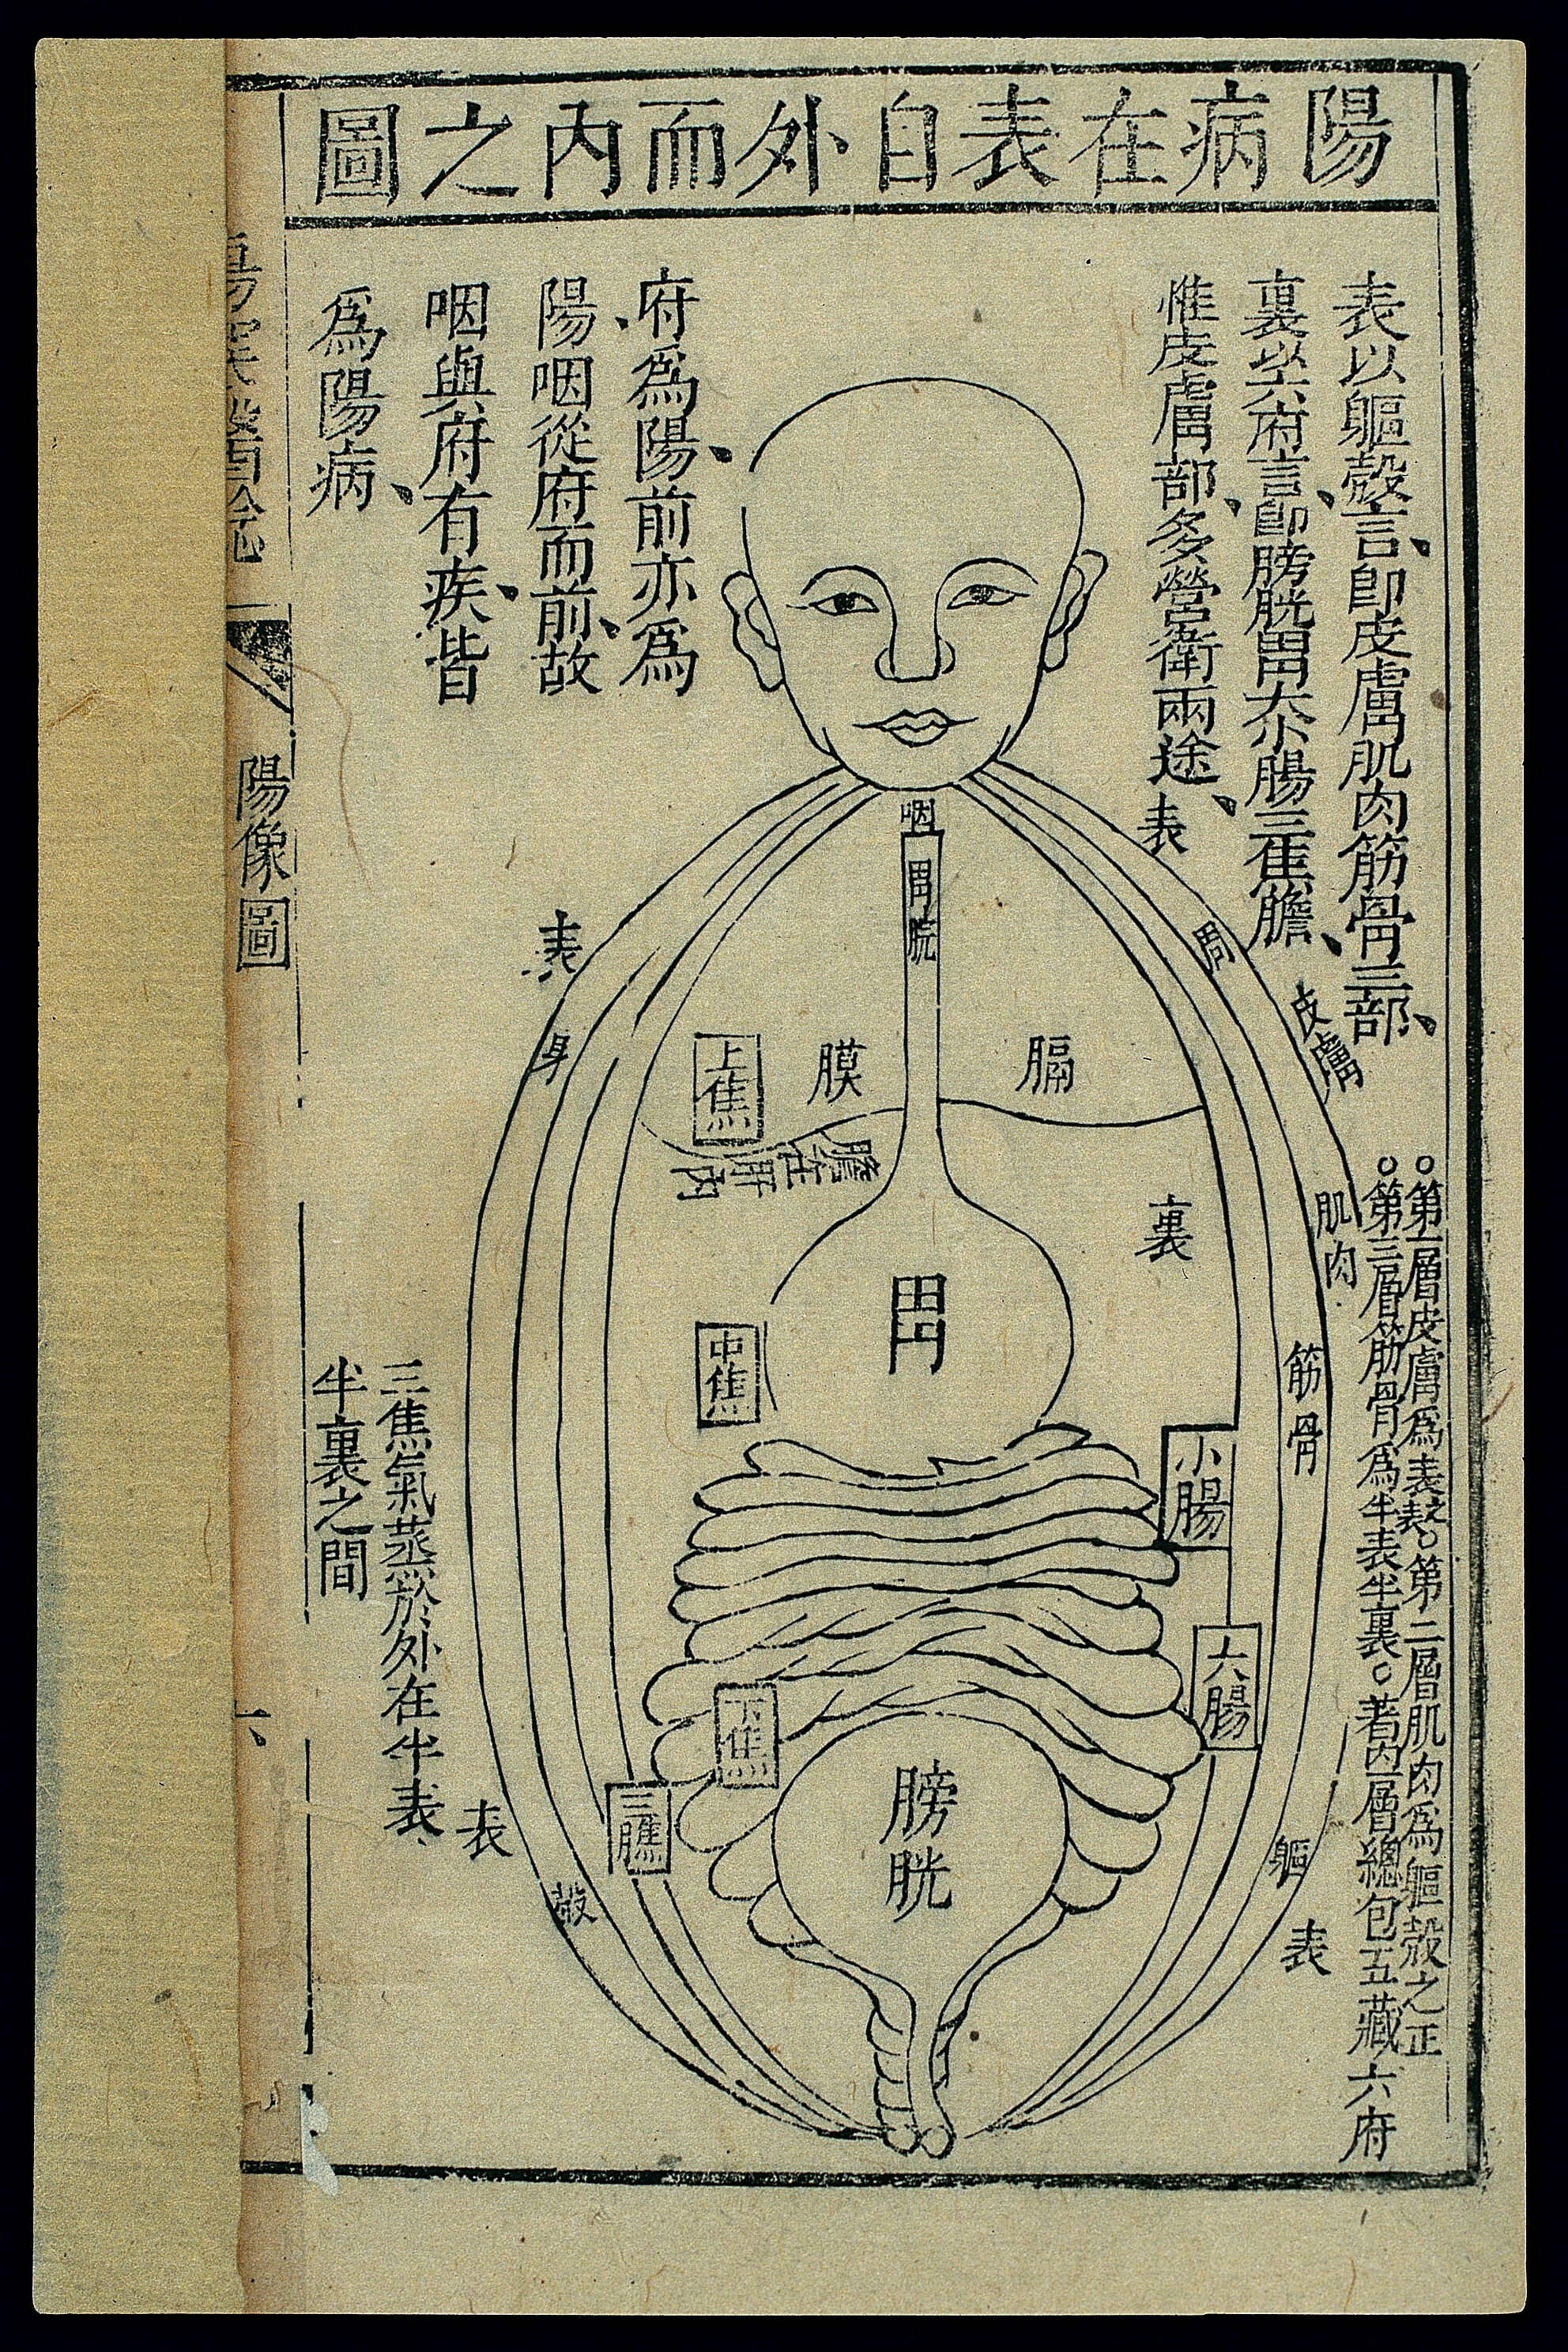 陽病在表自外而內之圖
表以軀殼言、卽皮膚肌肉筋骨三部、
裏以六府言、卽膀胱胃大小腸三焦膽、
惟皮膚部、多營衛兩途、
府爲陽、前亦爲
陽、咽從府而前、故
咽與府有疾、皆
爲陽病、
○第一層皮膚爲表之表○第二層肌肉爲軀殼之正
○第三層筋骨爲半表半裏○著內層總包五藏六府
三焦氣蒸於外在半表
半裏之間
表
表
表
表
周
身
軀
殼
皮膚
肌肉
筋骨
咽
胃脘
膈
膜
上焦
膽在肝內
裏
胃
中焦
小腸
大腸
下焦
三膲
膀胱
陽像圖
六